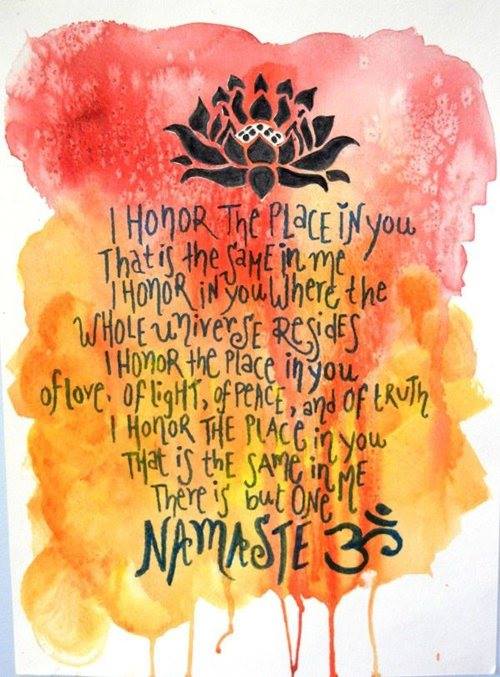 I HONOR The PLACE iN you
That is the SAME in me
I HONOR in you Where the
WHOLE uNiVERSE RESiDES
I HONOR the PLACE in you
of love, OF LigHT, of PEACE, and OF tRUTH
I HONOR THE PLACE in you
THAT iS thE SAME in ME
There is but ONE
NAMASTE ॐ